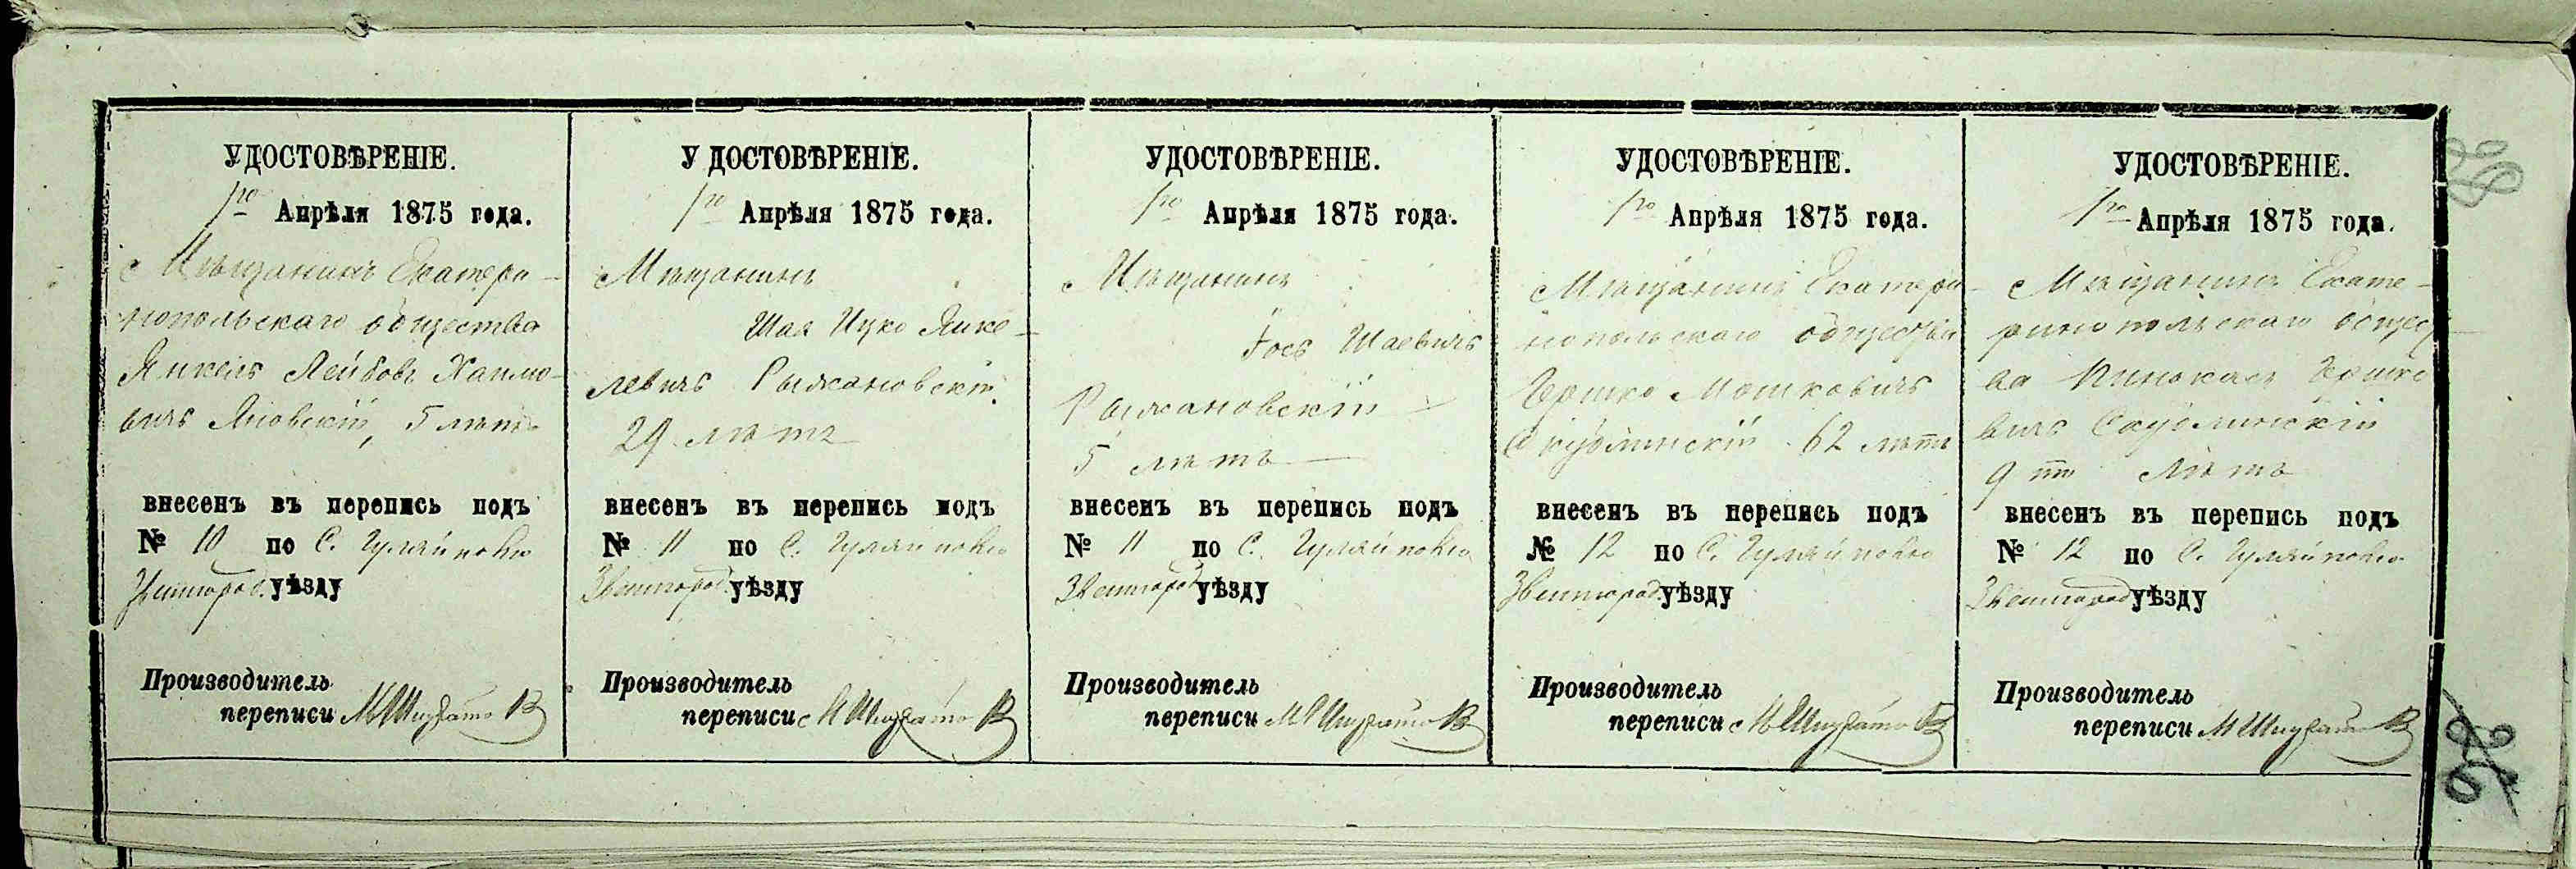 УДОСТОВѢРЕНІЕ.
1го Апрѣля 1875 года.
Мѣщанинъ Екатери-
нопольскаго общества
Янкель Лейбовъ Хаимо-
вичъ Яновскій, 5 лѣтъ
внесенъ въ перепись подъ
№ 10 по С. Гуляйполю
Звенигород. уѣзду
Производитель
переписи
УДОСТОВѢРЕНІЕ.
1го Апрѣля 1875 года.
Мѣщанинъ
Шая Ицко Янке-
левичъ Рыжановскій
29 лѣтъ
внесенъ въ перепись подъ
№ 11 по С. Гуляйполю
Звенигород. уѣзду
Производитель
переписи
УДОСТОВѢРЕНІЕ.
1го Апрѣля 1875 года.
Мѣщанинъ
Іось Шаевичъ
Рыжановскій
5 лѣтъ
внесенъ въ перепись подъ
№ 11 по С. Гуляйполю
Звенигород уѣзду
Производитель
переписи
УДОСТОВѢРЕНІЕ.
1го Апрѣля 1875 года.
Мѣщанинъ Екатери-
нопольскаго общества
Гершко Мошковичъ
62 лѣтъ
внесенъ въ перепись подъ
№ 12 по С. Гуляйполю
Звенигород. уѣзду
Производитель
переписи
УДОСТОВѢРЕНІЕ.
1го Апрѣля 1875 года.
Мѣщанинъ Екате-
ринопольскаго общест
ва Пинхасъ Гершко
вичъ
9 ти лѣтъ
внесенъ въ перепись подъ
№ 12 по С. Гуляйполю
Звенигород уѣзду
Производитель
переписи